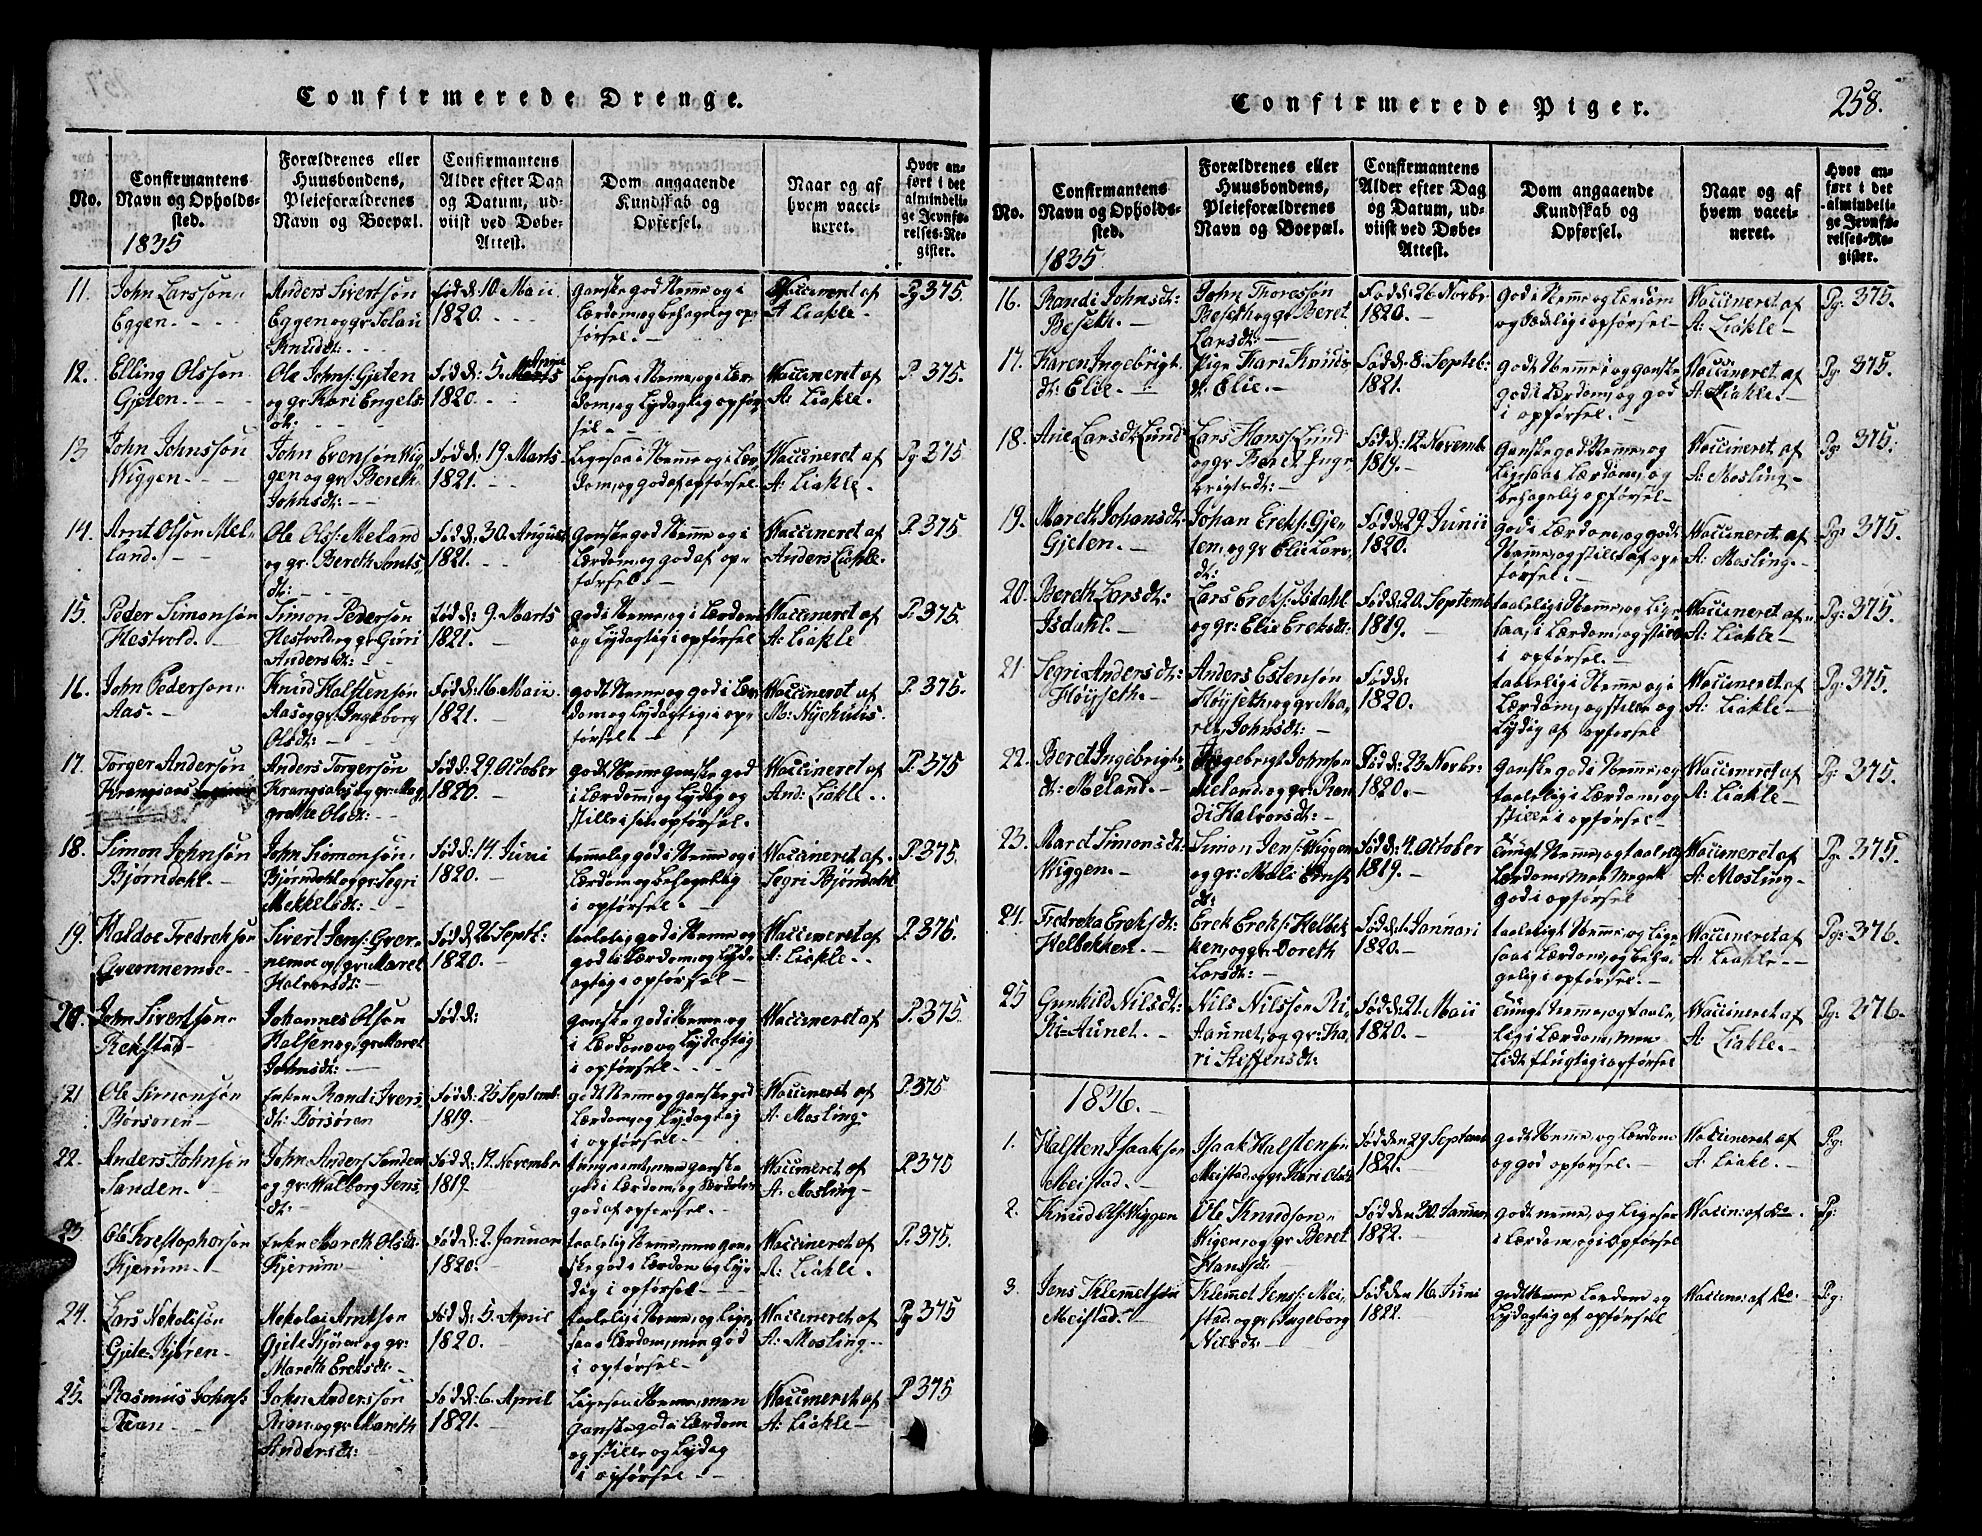 Confirmerede Drenge.
No.
Confirmantens
Navn og Opholds-
sted.
1835
Forældrenes eller
Huusbondens,
Pleieforældrenes
Navn og Boepæl.
Confirmantens
Alder efter Dag
og Datum, ud-
viist ved Døbe-
Attest.
Dom angaaende
Kundskab og
Opførsel.
Naar og af
hvem vacci-
neret.
Hvor an-
ført i det
almindeli-
ge Jevnfø-
relses-Re-
gister.
11.
John Larssøn,
Eggen.
Anders Sivertsøn
Eggen og gr
Knudsdt:
Fød d: 10 Maii
1820.
Ganske god Nemme og i
Lærdom, og behagelig op-
førsel.
Vaccineret af
A Liakle.
Pg 375.
12.
Elling Olssøn
Gjeten.
Ole Johns: Gjeten
og gr Kari Engels
dt:
Fød d: 5.
1820.
Ligesaa i Nemme, og i Lær-
dom, og Lydagtig opfør-
sel
Vaccineret af
A: Liakle.
P. 375.
13
John Johnssøn
Wiggen.
John Evensøn Wig
gen og gr Bereth
Johnsdt:
Fød d: 19 Marts
1821.
Ligesaa i Nemme, og i Lær-
dom, og god af opførsel.
Vaccineret af
A: Liakle.
Pg 375
14.
Arnt Olsøn Mel-
land.
Ole Olss: Meland
og gr. Bereth Arnts
dt:
Fød d: 30. August
1821.
Ganske god Nemme og i
Lærdom, og god af op-
førsel.
Vaccineret af
Anders Liakle.
P. 375
15.
Peder Simonsøn
Hestvold.
Simon Pedersøn
Hestvold og gr Guri
Andersdt:
Fød d: 9. Marts
1821.
god i Nemme, og i Lærdom
og Lydagtig i opførsel
Vaccineret af
A: Liakle
P. 375.
16.
John Pedersøn,
Aas.
Knud Halstensøn
Aas og gr: Ingeborg
Olsdt:
Fød d: 16. Maii
1821.
godt Nemme og god i Lær-
dom og Lydagtig, i op-
førsel
Vaccineret af
M: Nyehuus.
P. 375.
17.
Torger Andersøn
Anders Torgersøn
og gr: Mar
grethe Olsdt:
Fød d: 29. October
1820.
godt Nemme ganske god
i Lærdom, og Lydig og
stille i sin opførsel.
Vaccineret af
And: Liakle.
P. 375
18.
Simon Johnsøn
Bjørndahl.
John Simonsøn,
Bjørndahl og gr: Segri
Mekkelsdt:
Fød d: 14. Juni
1820.
temmelig god i Nemme og i
Lærdom og behagelig
i opførsel.
Vaccineret af
Segri Bjørndahl
P. 375.
19.
Haldoe Fredreksøn
Sivert Jens:
nemoe og gr: Maret
Halvorsdt:
Fød d: 26 Septb:
1820.
taalelig god i Nemme og
god i Lærdom, og Lyd-
agtig i opførsel
Vaccineret af
A: Liakle.
P. 376.
20.
John Sivertsøn
Rekstad
Johannes Olsøn
Halsen og gr: Maret
Johnsdt:
Fød d:
ganske god i Nemme, og
i Lærdom og Lydagtig
i opførsel.
Vaccineret af
P. 375.
21
Ole Simonsøn
Børsøren
Enken Randi Ivers
dt: Børsøren
Fød d: 25 Septemb:
1819.
godt Nemme og ganske god
Lærdom, og Lydagtig
i opførsel.
Vaccineret af
A: Mosling.
P. 375
22.
Anders Johnsøn
Sanden.
John Anders: Sanden
og gr: Walborg Jens
dt:
Fød d: 12. Novembr
1819
tungnæmt, men ganske
god i Lærdom, og
god af opførsel.
Vaccineret af
A: Mosling
P 375
23
Ole Krestophersøn
Kjerum
Enken Mareth Olsdt.
Kjerum
Fød d: 2 Januari
1820.
taalelig Nemme, men gan-
ske god i Lærdom og Lyd-
dig i opførsel
Vaccineret af
A: Liakle.
P. 375.
24.
Lars Nekolisøn
Gjete-Kjøren
Nekolai Arntsøn
Gjete Kjøren og gr:
Mareth Ereksdt:
Fød d: 5. April
1820.
taalelig Nemme, og lige-
saa Lærdom, men god
i opførsel
Vaccineret af
A: Mosling
Pg 375
25.
Rasmus Johns:
John Anderssøn
og gr: Mareth
Andersdt:
Fød d: 6. April
1821.
Ligesaa i Nemme, men
ganske god i Lærdom
og stille og Lydag
i opførsel
Vaccineret af
A: Liakle
P 375
Confirmerede Piger.
258.
No.
Confirmantens
Navn og Opholds-
sted.
1835.
Forældrenes eller
Huusbondens,
Pleieforældrenes
Navn og Boepæl.
Confirmantens
Alder efter Dag
og Datum, ud-
viist ved Døbe-
Attest.
Dom angaaende
Kundskab og
Opførsel.
Naar og af
hvem vacci-
neret.
Hvor an-
ført i det
almindeli-
ge Jevnfø-
relses-Re-
gister.
16.
Randi Johnsdt:
Beseth.
John Thoressøn
Beseth og gr Beret
Larsdt:
Fød d: 26 Novbr:
1820.
God i Nemme, og Lærdom
og Sædelig i opførsel
Vaccineret af
A: Liakle
Pg: 375.
17.
Karen Ingebrigt
dt: Elie.
Pige Kari Knuds
dt: Elie.
Fød d: 8. Septeb:
1821.
godt Nemme, og ganske
god i Lærdom, og god
i opførsel.
Vaccineret af
A: Liakle.
Pg: 375.
18.
Ane Larsdt: Lund
Lars Hanss: Lund
og gr Beret Inge-
brigtsdt:
Fød d: 12 Novemb
1819.
Ganske god Nemme, og
Ligesaa Lærdom, og
behagelig opførsel
Vaccineret af
A: Mosling
Pg: 375.
19.
Mareth Johansdt:
Gjeten.
Johan Ereks: Gje-
ten, og gr Elie Lars
dt:
Fød d: 29 Junii
1820.
God i Lærdom, og godt
Nemme, og stille af op-
førsel.
Vaccineret af
A: Mosling.
Pg: 375.
20.
Bereth Larsdt:
Isdahl.
Lars Ereks: Isdahl
og gr: Elie Ereksdt:
Fød d: 20. Septemb
1819.
taalelig i Nemme, og lige-
saa, i Lærdom, og
i opførsel.
Vaccineret af
A: Liakle
Pg: 375.
21
Segri Andersdt:
Høyseth.
Anders Estensøn
Høyseth, og gr Ma-
Johnsdt:
Fød d:
1820.
taalelig i Nemme og i
Lærdom, og stille og
Lydig af opførsel
Vaccineret af
A: Liakle
Pg: 375.
22.
Beret Ingebrigts
dt: Meland.
Ingebrigt Johnsøn
Meland, og gr: Ran
di Halvorsdt:
Fød d: 23 Novbr:
1820.
Ganske god i Nemme, og
taalelig i Lærdom, og
stille i opførsel
Vaccineret af
A: Liakle
Pg: 375.
23.
Maret Simonsdt:
Wiggen.
Simon Jens: Wiggen
og gr: Mali Ernst
dt:
Fød d: 4. October
1819.
tungt Nemme, og taalelig
Lærdom, Men Meget
god i opførsel
Vaccineret af
A: Mosling
Pg: 375.
24.
Fredreka Ereksdt:
Helbekken.
Erek Ereks: Helbek
ken, og gr: Doreth
Larsdt:
Fød d: 1. Januari
1820.
taalelig i Nemme, og Lige-
saa Lærdom, og beha-
gelig i opførsel.
Vaccineret af
A: Liakle
Pg: 376.
25
Gunhild Nilsdt:
Ri-Aunet.
Nils Nilssøn Ri
Aaunet, og gr: Ka-
ri Steffensdt:
Fød d: 21. Maii
1820.
tungt Nemme, og taale-
lig i Lærdom, men
Lidt flugtig i opførsel
Vaccineret af
A: Liakle.
Pg: 376.
1836.
1.
Halsten Isaaksøn
Meistad.
Isaak Halstensøn
Meistad, og gr: Kari Olsdt
Fød den 29 Septemb
1821.
godt Nemme, og Lærdom
og god opførsel.
Vaccineret af
A: Liakl.
Pg:
2.
Knud Ols: Wiggen
Ole Knudsøn
Wigen, og gr Beret
Hansdt:
Fød den 30. Januar
1822.
godt nemme, og Ligesaa
i Lærdom, og i Opførsel
Vaccin: af do
Pg:
3.
Jens Klemmetsøn
Meistad.
Klemmet Jens: Mei-
stad, og gr: Ingeborg
Nilsdt:
Fød den 16. Juni
1822.
godt Nemme Lærdom og
Lydagtig af opførsel
Vaccin: af do.
Pg: